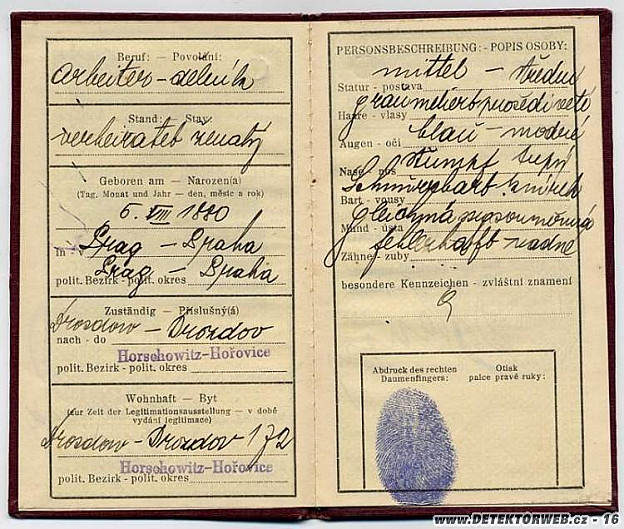 Beruf: — Povolání:
Arbeiter - dělník
Stand: Stav:
verheiratet ženatý
Geboren am — Narozen(a)
(Tag, Monat und Jahr — den, měsíc a rok)
5. VIII 1880
in v Prag — Praha
Prag — Praha
polit. Bezirk - polit. okres
Zuständig — Příslušný(á)
Drosdow — Drozdov
nach - do
Horschowitz-Hořovice
polit. Bezirk - polit. okres
Wohnhaft — Byt
(zur Zeit der Legitimationsausstellung — v době vydání legitimace)
Drosdow — Drozdov 172
Horschowitz-Hořovice
polit. Bezirk - polit. okres
PERSONSBESCHREIBUNG: - POPIS OSOBY:
mittel — střední
Statur - postava
graumeliert prošedivělé
Haare - vlasy
blau — modré
Augen - oči
stumpf tupý
Nase - nos
Schnurrbart knírek
Bart - vousy
Mund - ústa
fehlerhaft vadné
Zähne - zuby
besondere Kennzeichen - zvláštní znamení
Abdruck des rechten Daumenfingers:
Otisk palce pravé ruky:
www.DETEKTORWEB.cz - 16